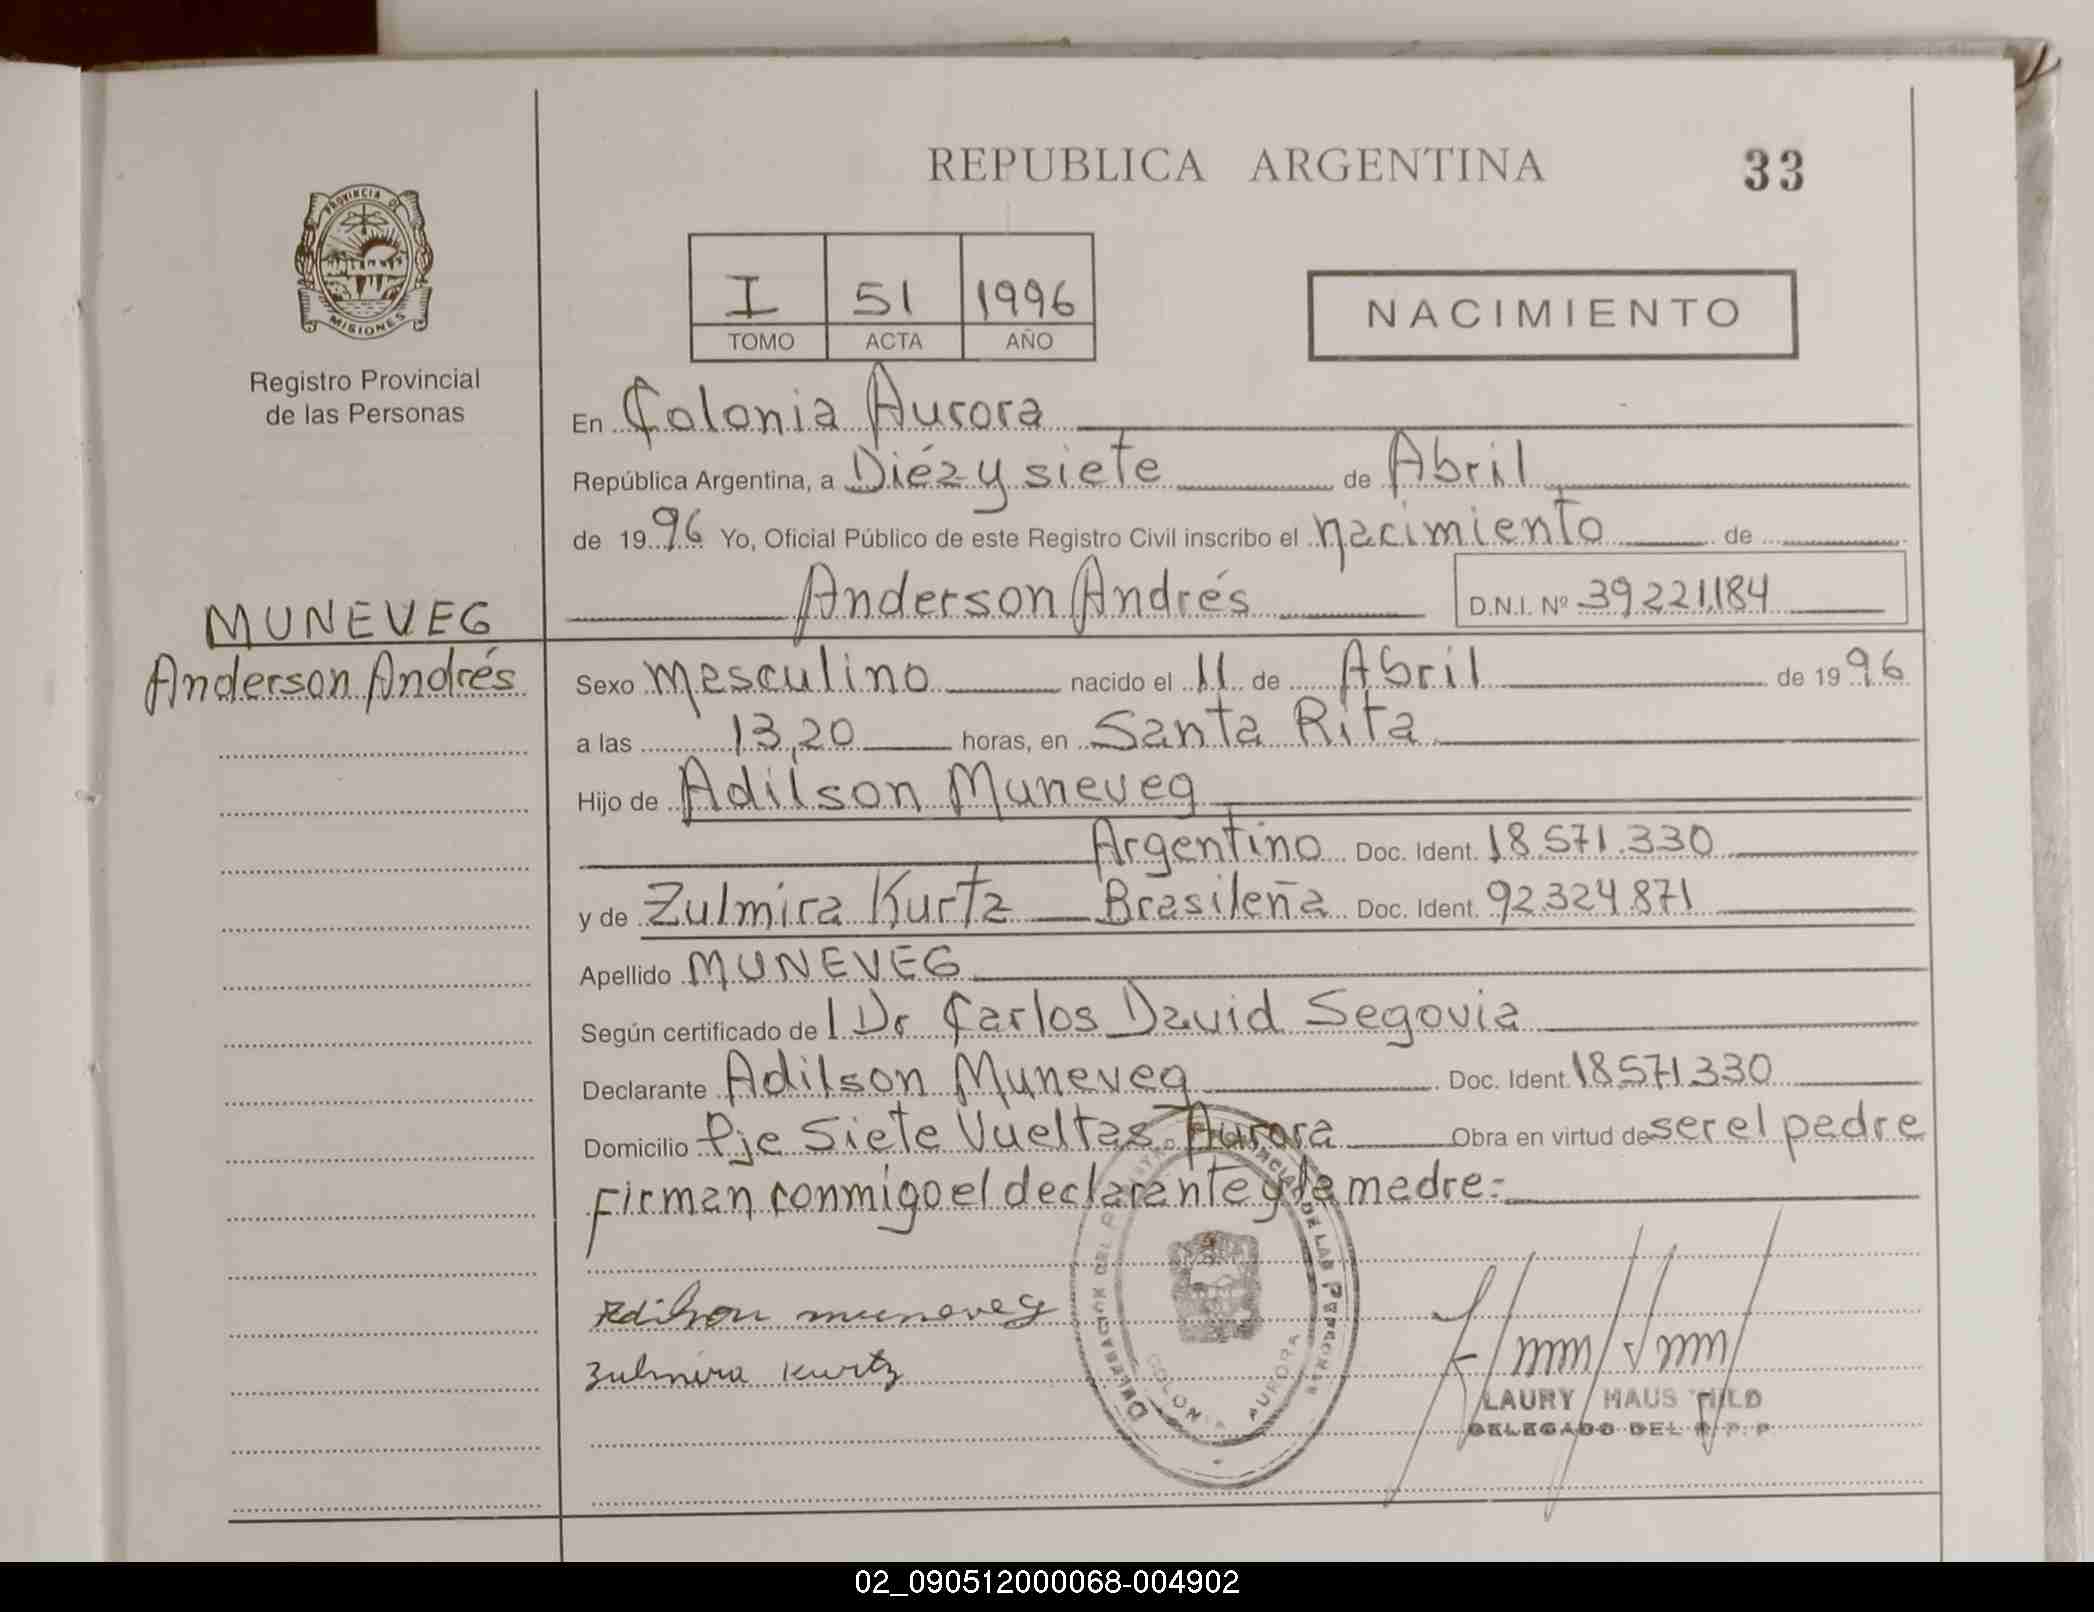 REPUBLICA ARGENTINA
33
PROVINCIA DE
MISIONES
Registro Provincial
de las Personas
I 51 1996
TOMO ACTA AÑO
NACIMIENTO
En Colonia Aurora
República Argentina, a Diéz y siete de Abril
de 1996 Yo, Oficial Público de este Registro Civil inscribo el nacimiento de
Anderson Andrés D.N.I. Nº 39.221.184
MUNEVEG
Anderson Andrés
Sexo Masculino nacido el 11 de Abril de 1996
a las 13,20 horas, en Santa Rita
Hijo de Adilson Muneveg
Argentino Doc. Ident. 18.571.330
y de Zulmira Kurtz Brasileña Doc. Ident. 92.324.871
Apellido MUNEVEG
Según certificado de l Dr Carlos David Segovia
Declarante Adilson Muneveg Doc. Ident. 18.571.330
Domicilio Pje Siete Vueltas. Aurora Obra en virtud de ser el padre
Firman conmigo el declarante y la madre:-
Adilson muneveg
Zulmira Kurtz
DELEGACION DEL REGISTRO PROVINCIAL DE LAS PERSONAS
COLONIA AURORA
LAURY HAUS HILD
DELEGADO DEL R.P.P
02_090512000068-004902